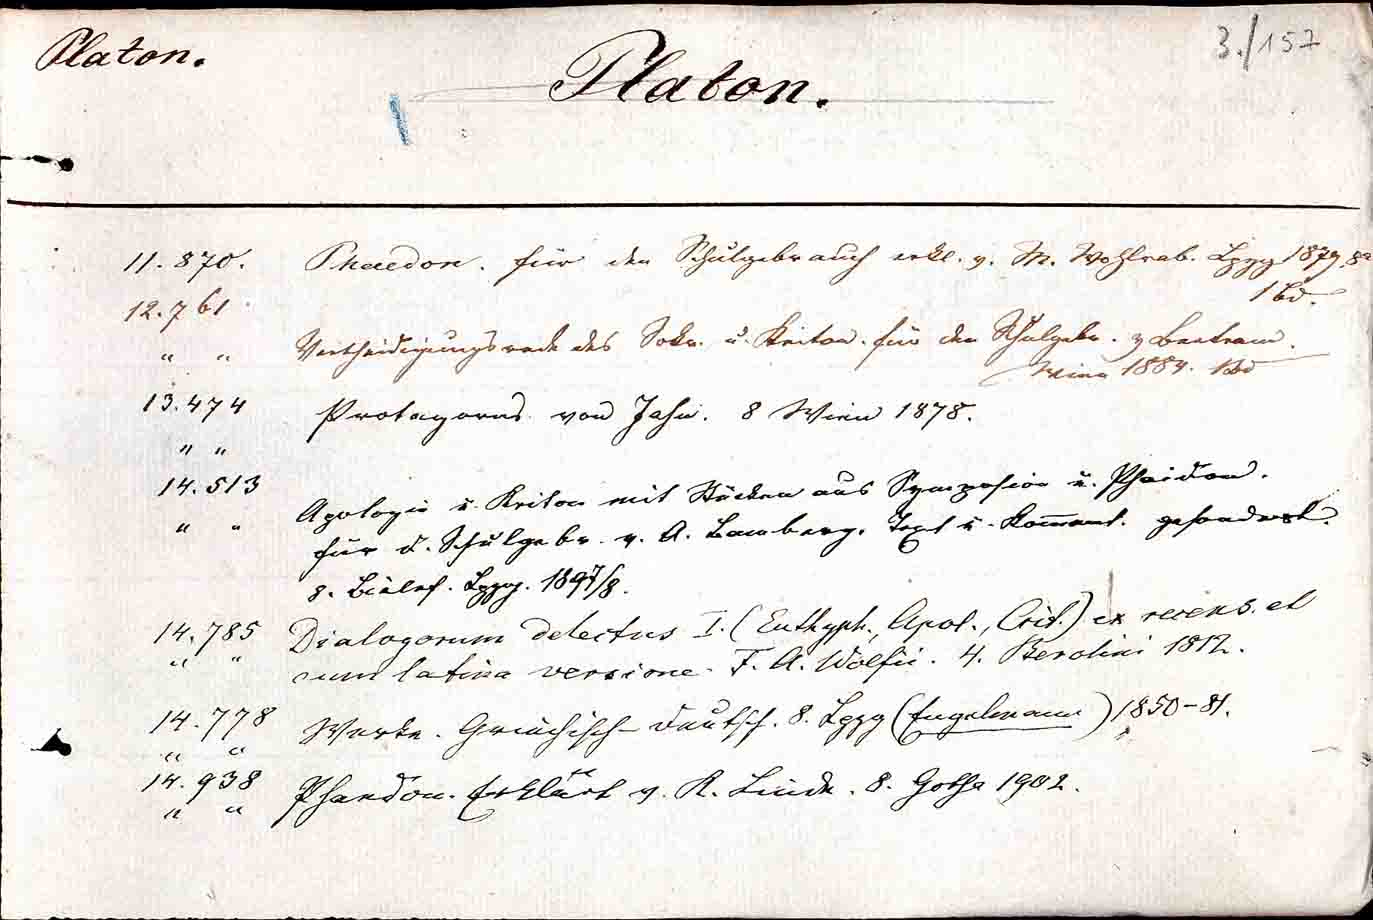 Platon.
Platon.
3./157
11.870. Phaedon. für den Schulgebrauch erkl. v. M. Wohlrab. Lpzg 1879. 8°
1 Bd.
12.761
" " Vertheidigungsrede des Sokr. u. Kriton. für den Schulgebr. v Bertram.
1884. 1 Bd
13.474 Protagoras von Jahn. 8 Wien 1878.
" "
14.513
" " Apologie u. Kriton mit Stücken aus Symposion u. Phaidon.
für d. Schulgebr. v. A. Bamberg. Text u. Komment. gesondert.
8. Bielef. Lpzg. 1897/8.
14.785 Dialogorum delectus I. (Euthyph., Apol., Crit.) ex recens. et
" " cum latina versione F. A. Wolfii. 4. Berolini 1812.
14.778 Werke. Griechisch-deutsch. 8. Lpzg (Engelmann) 1850-81.
" "
14.938 Phaedon. Erklärt v. K. Linde. 8. Gotha 1902.
" "